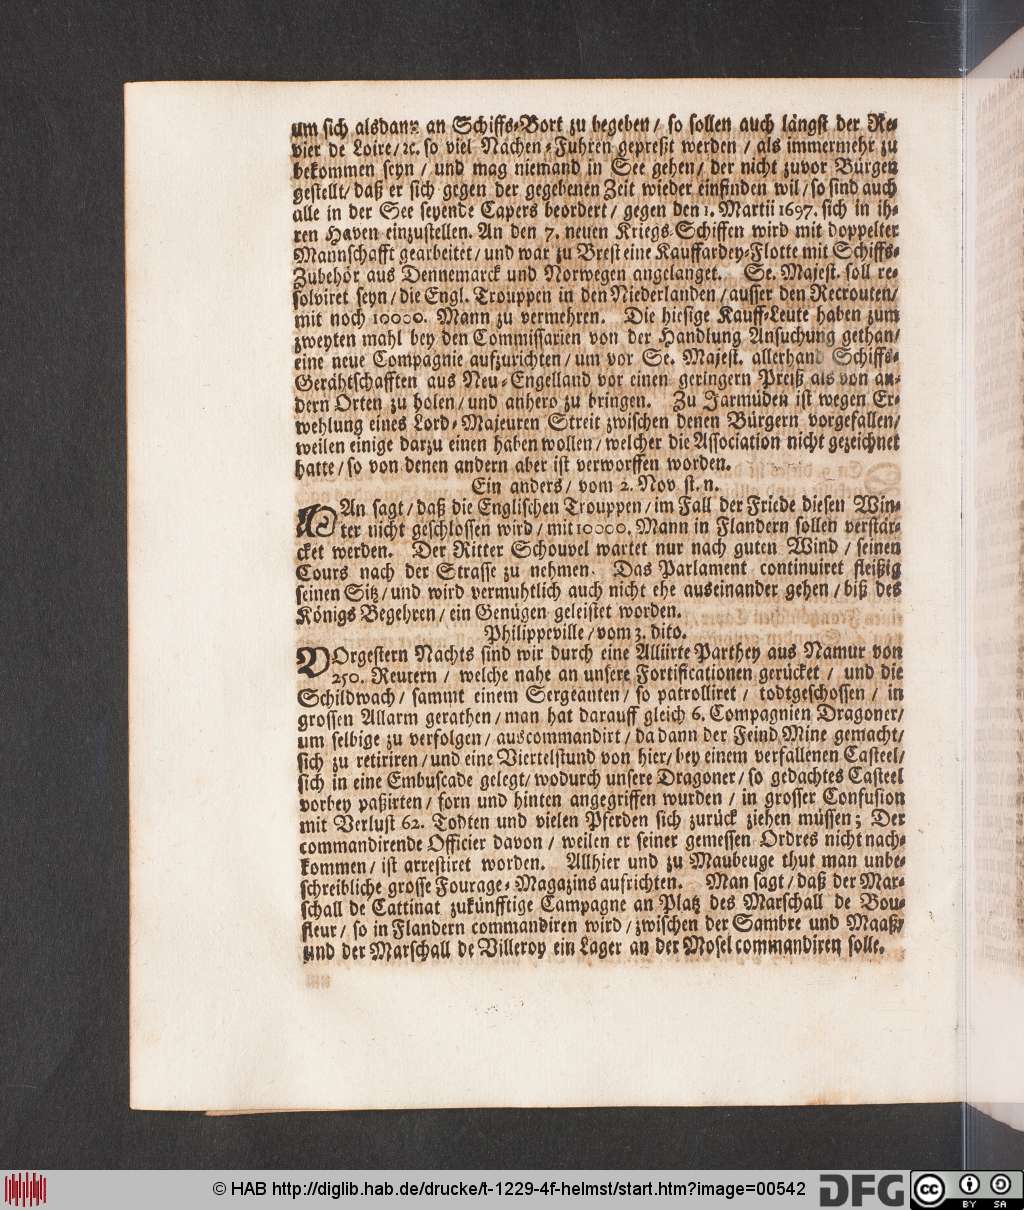 um sich alsdann an Schiffs-Bort zu begeben / so sollen auch längst der Re-
vier de Loire / ꝛc. so viel Nachen-Fuhren gepreßt werden / als immermehr zu
bekommen seyn / und mag niemand in See gehen / der nicht zuvor Bürgen
gestellt / daß er sich gegen der gegebenen Zeit wieder einfinden wil / so sind auch
alle in der See seyende Capers beordert / gegen den 1. Martii 1697. sich in ih-
ren Haven einzustellen. An den 7. neuen Kriegs-Schiffen wird mit doppelter
Mannschafft gearbeitet / und war zu Brest eine Kauffardey-Flotte mit Schiffs-
Zubehör aus Dennemarck und Norwegen angelanget. Se. Majest. soll re-
solviret seyn / die Engl. Trouppen in den Niederlanden / ausser den Recrouten /
mit noch 10000. Mann zu vermehren. Die hiesige Kauff-Leute haben zum
zweyten mahl bey den Commissarien von der Handlung Ansuchung gethan /
eine neue Compagnie aufzurichten / um vor Se. Majest. allerhand Schiffs-
Gerähtschafften aus Neu-Engelland vor einen geringern Preiß als von an-
dern Orten zu holen / und anhero zu bringen. Zu Jarmüden ist wegen Er-
wehlung eines Lord-Majeuren Streit zwischen denen Bürgern vorgefallen /
weilen einige darzu einen haben wollen / welcher die Association nicht gezeichnet
hatte / so von denen andern aber ist verworffen worden.
Ein anders / vom 2. Nov st. n.
MAn sagt / daß die Englischen Trouppen / im Fall der Friede diesen Win-
ter nicht geschlossen wird / mit 10000. Mann in Flandern sollen verstär-
cket werden. Der Ritter Schouvel wartet nur nach guten Wind / seinen
Cours nach der Strasse zu nehmen. Das Parlament continuiret fleißig
seinen Sitz / und wird vermuhtlich auch nicht ehe auseinander gehen / biß des
Königs Begehren / ein Genügen geleistet worden.
Philippeville / vom 3. dito.
VOrgestern Nachts sind wir durch eine Alliirte Parthey aus Namur von
250. Reutern / welche nahe an unsere Fortificationen gerücket / und die
Schildwach / sammt einem Sergeanten / so patrolliret / todtgeschossen / in
grossen Allarm gerathen / man hat darauff gleich 6. Compagnien Dragoner /
um selbige zu verfolgen / auscommandirt / da dann der Feind Mine gemacht /
sich zu retiriren / und eine Viertelstund von hier / bey einem verfallenen Casteel /
sich in eine Embuscade gelegt / wodurch unsere Dragoner / so gedachtes Casteel
vorbey paßirten / forn und hinten angegriffen wurden / in grosser Confusion
mit Verlust 62. Todten und vielen Pferden sich zurück ziehen müssen; Der
commandirende Officier davon / weilen er seiner gemessen Ordres nicht nach-
kommen / ist arrestiret worden. Allhier und zu Maubeuge thut man unbe-
schreibliche grosse Fourage-Magazins aufrichten. Man sagt / daß der Mar-
schall de Cattinat zukünfftige Campagne an Platz des Marschall de Bou-
fleur / so in Flandern commandiren wird / zwischen der Sambre und Maaß /
und der Marschall de Villeroy ein Lager an der Mosel commandiren solle.
© HAB http://diglib.hab.de/drucke/t-1229-4f-helmst/start.htm?image=00542
DFG
cc BY SA